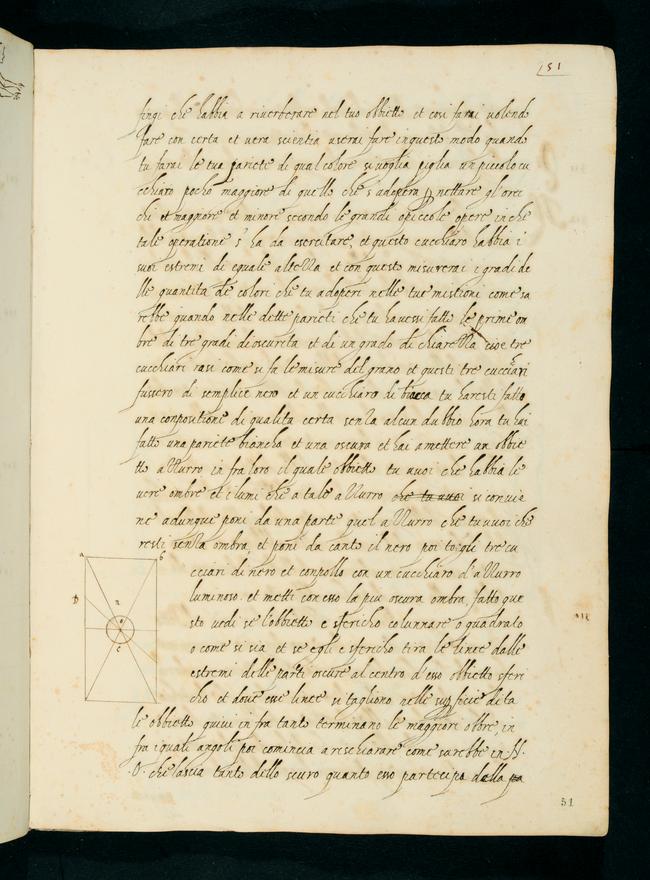 151
fingi che habbia a riverberare nel tuo obbietto et cosi farai volendo
fare con certa et vera scientia userai fare in questo modo quando
tu farai le tua pariete di qual colore si voglia piglia un piccolo cu
cchiaro pocho maggiore di quello che s'adopera p nettare gl'orec
chi et magiore et minore secondo le grandi o piccole opere in che
tale operatione s'ha da esercitare, et questo cucchiaro habbia i
suoi estremi di equale altezza et con questo misurerai i gradi de
lle quantita de colori che tu adoperi nelle tue mistioni come sa
rebbe quando nelle dette parieti che tu havessi fatto le prime om
bre di tre gradi di oscurita et di un grado di chiarezza cioe tre
cucchiari rasi come si fa le misure del grano et questi tre cucchiari
fussero di semplice nero et un cucchiaro di biacca tu haresti fatto
una conpositione di qualita certa senza alcun dubbio hora tu hai
fatto una pariete biancha et una oscura et hai a mettere un obbie
tto azzurro in fra loro il quale obbietto tu vuoi che habbia le
vere ombre et i lumi che a tale azzurro che tu vuoi si convie
ne adunque poni da una parte quel azzurro che tu vuoi che
resti senza ombra, et poni da canto il nero poi togli tre cu
cciari di nero et conpollo con un cucchiaro d'azzurro
luminoso. et metti con esso la piu oscura ombra, fatto que
sto vedi se l'obbietto e sfericho colunnare o quadrato
o come si sia et se egli e sfericho tira le linee dalle
estremi delle parti oscure al centro d'esso obbietto sferi
cho et dove esse linee si tagliono nelle sup ficie di ta
le obbietto quivi in fra tanto terminano le maggiori obbre, in
fra i quali angoli poi comincia a rischiarare come sarebbe in .N.
.O. che lascia tanto dello scuro quanto esso participa dalla pa
a b
D
n
o
c
51